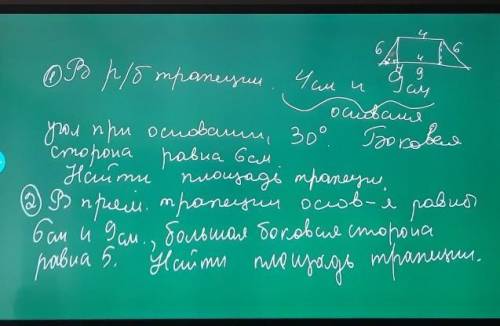 4
6 6
4
9
① В р/б трапеции. 4см и 9см
основания
угол при основании, 30°. Боковая
сторона равна 6см
Найти площадь трапеции.
② В прям. трапеции основ-я равны
6см и 9см., большая боковая сторона
равна 5. Найти площадь трапеции.